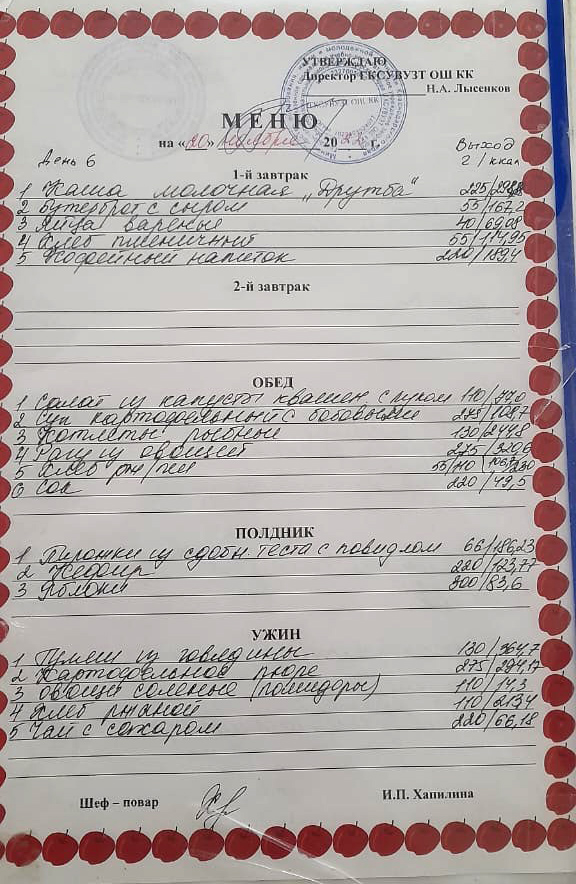 УТВЕРЖДАЮ
Директор ГКСУВУЗТ ОШ КК
Н.А. Лысенков
МЕНЮ
на «20» ноября 20 г.
День 6
Выход
г / ккал
1-й завтрак
1 Каша молочная „Дружба" 225/
2 Бутерброт с сыром 55/167,2
3 Яйца вареные 40/69,08
4 Хлеб пшеничный 55/114,95
5 Кофейный напиток 220/
2-й завтрак
ОБЕД
1 Салат из капусты квашен. с луком 110/77,0
2 Суп картофельный с бобовыми 275/108,7
3 Котлеты рыбные 130/244,8
4 Рагу из овощей 275/320,6
5 Хлеб рж/пш 55/110
6 Сок 220/49,5
ПОЛДНИК
1 Пирожки из сдобн. теста с повидлом 66/186,23
2 Кефир 220/123,77
3 Яблоки 200/83,6
УЖИН
1 Гуляш из говядины 130/364,7
2 Картофельное пюре 275/294,17
3 Овощи соленые (помидоры) 110/14,3
4 Хлеб ржаной 110/213,4
5 Чай с сахаром 220/66,18
Шеф – повар
И.П. Хапилина